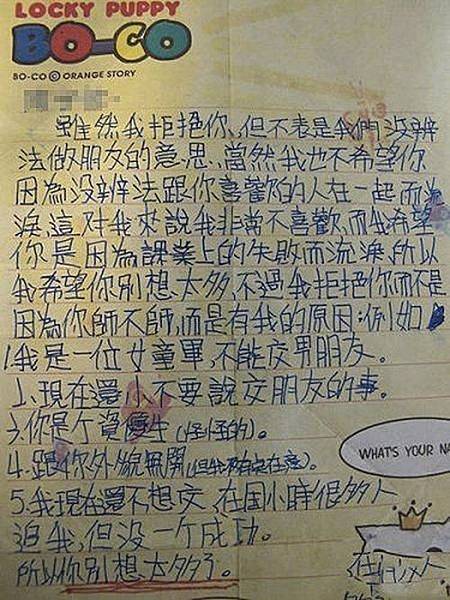 LOCKY PUPPY
BO-CO
BO-CO © ORANGE STORY
雖然我拒絕你、但不表是我們沒辦
法做朋友的意思、當然我也不希望你
因為沒辦法跟你喜歡的人在一起而流
淚、這对我來說我非常不喜歡、而我希望
你是因為課業上的失敗而流淚、所以
我希望你別想太多、不過我拒絕你而不是
因為你師不師、而是有我的原因:例如
1.我是一位女童軍,不能交男朋友。
2、現在還小不要說交朋友的事。
3.你是个資優生(怪怪的)。
4.跟你外貌無關(但我有在意)。
WHAT'S YOUR NA
5.我現在還不想交,在国小時很多人
追我,但没一个成功。
所以你別想太多了。